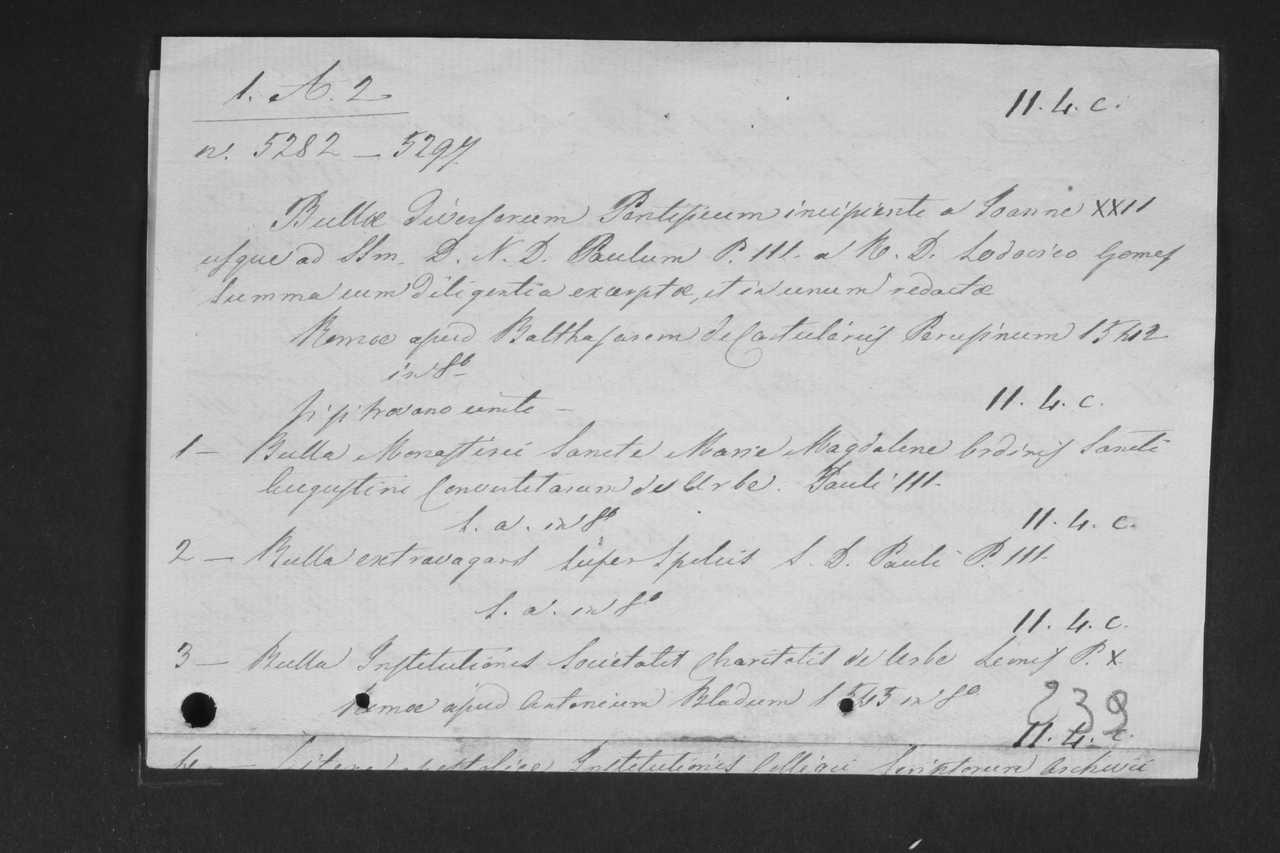 1. A. 2
11. 4. c.
n. 5282 — 5297
Bullæ diversorum Pontificum incipiente a Joanne XXII
usque ad SSm. D. N. D. Paulum P. III. a R. D. Lodovico Gomes
summa cum diligentia excerptæ, et in unum redactæ
Romæ apud Balthasarem de Cartulariis Perusinum 1542
in 8º
si si trovano unite —
11. 4. c.
1 — Bulla Monasterii Sancte Marie Magdalene Ordinis Sancti
Augustini Convertitarum de Urbe. Pauli III.
s. a. in 8º
11. 4. c.
2 — Bulla extravagans super Spoliis S. D. Pauli P. III
s. a. in 8º
11. 4. c.
3 — Bulla Institutionis Societatis Charitatis de Urbe Leonis P. X.
Romæ apud Antonium Bladum 1543 in 8º
239
11. 4. c.
4 — Litere apostolice Institutionis Collegii Scriptorum Archivii